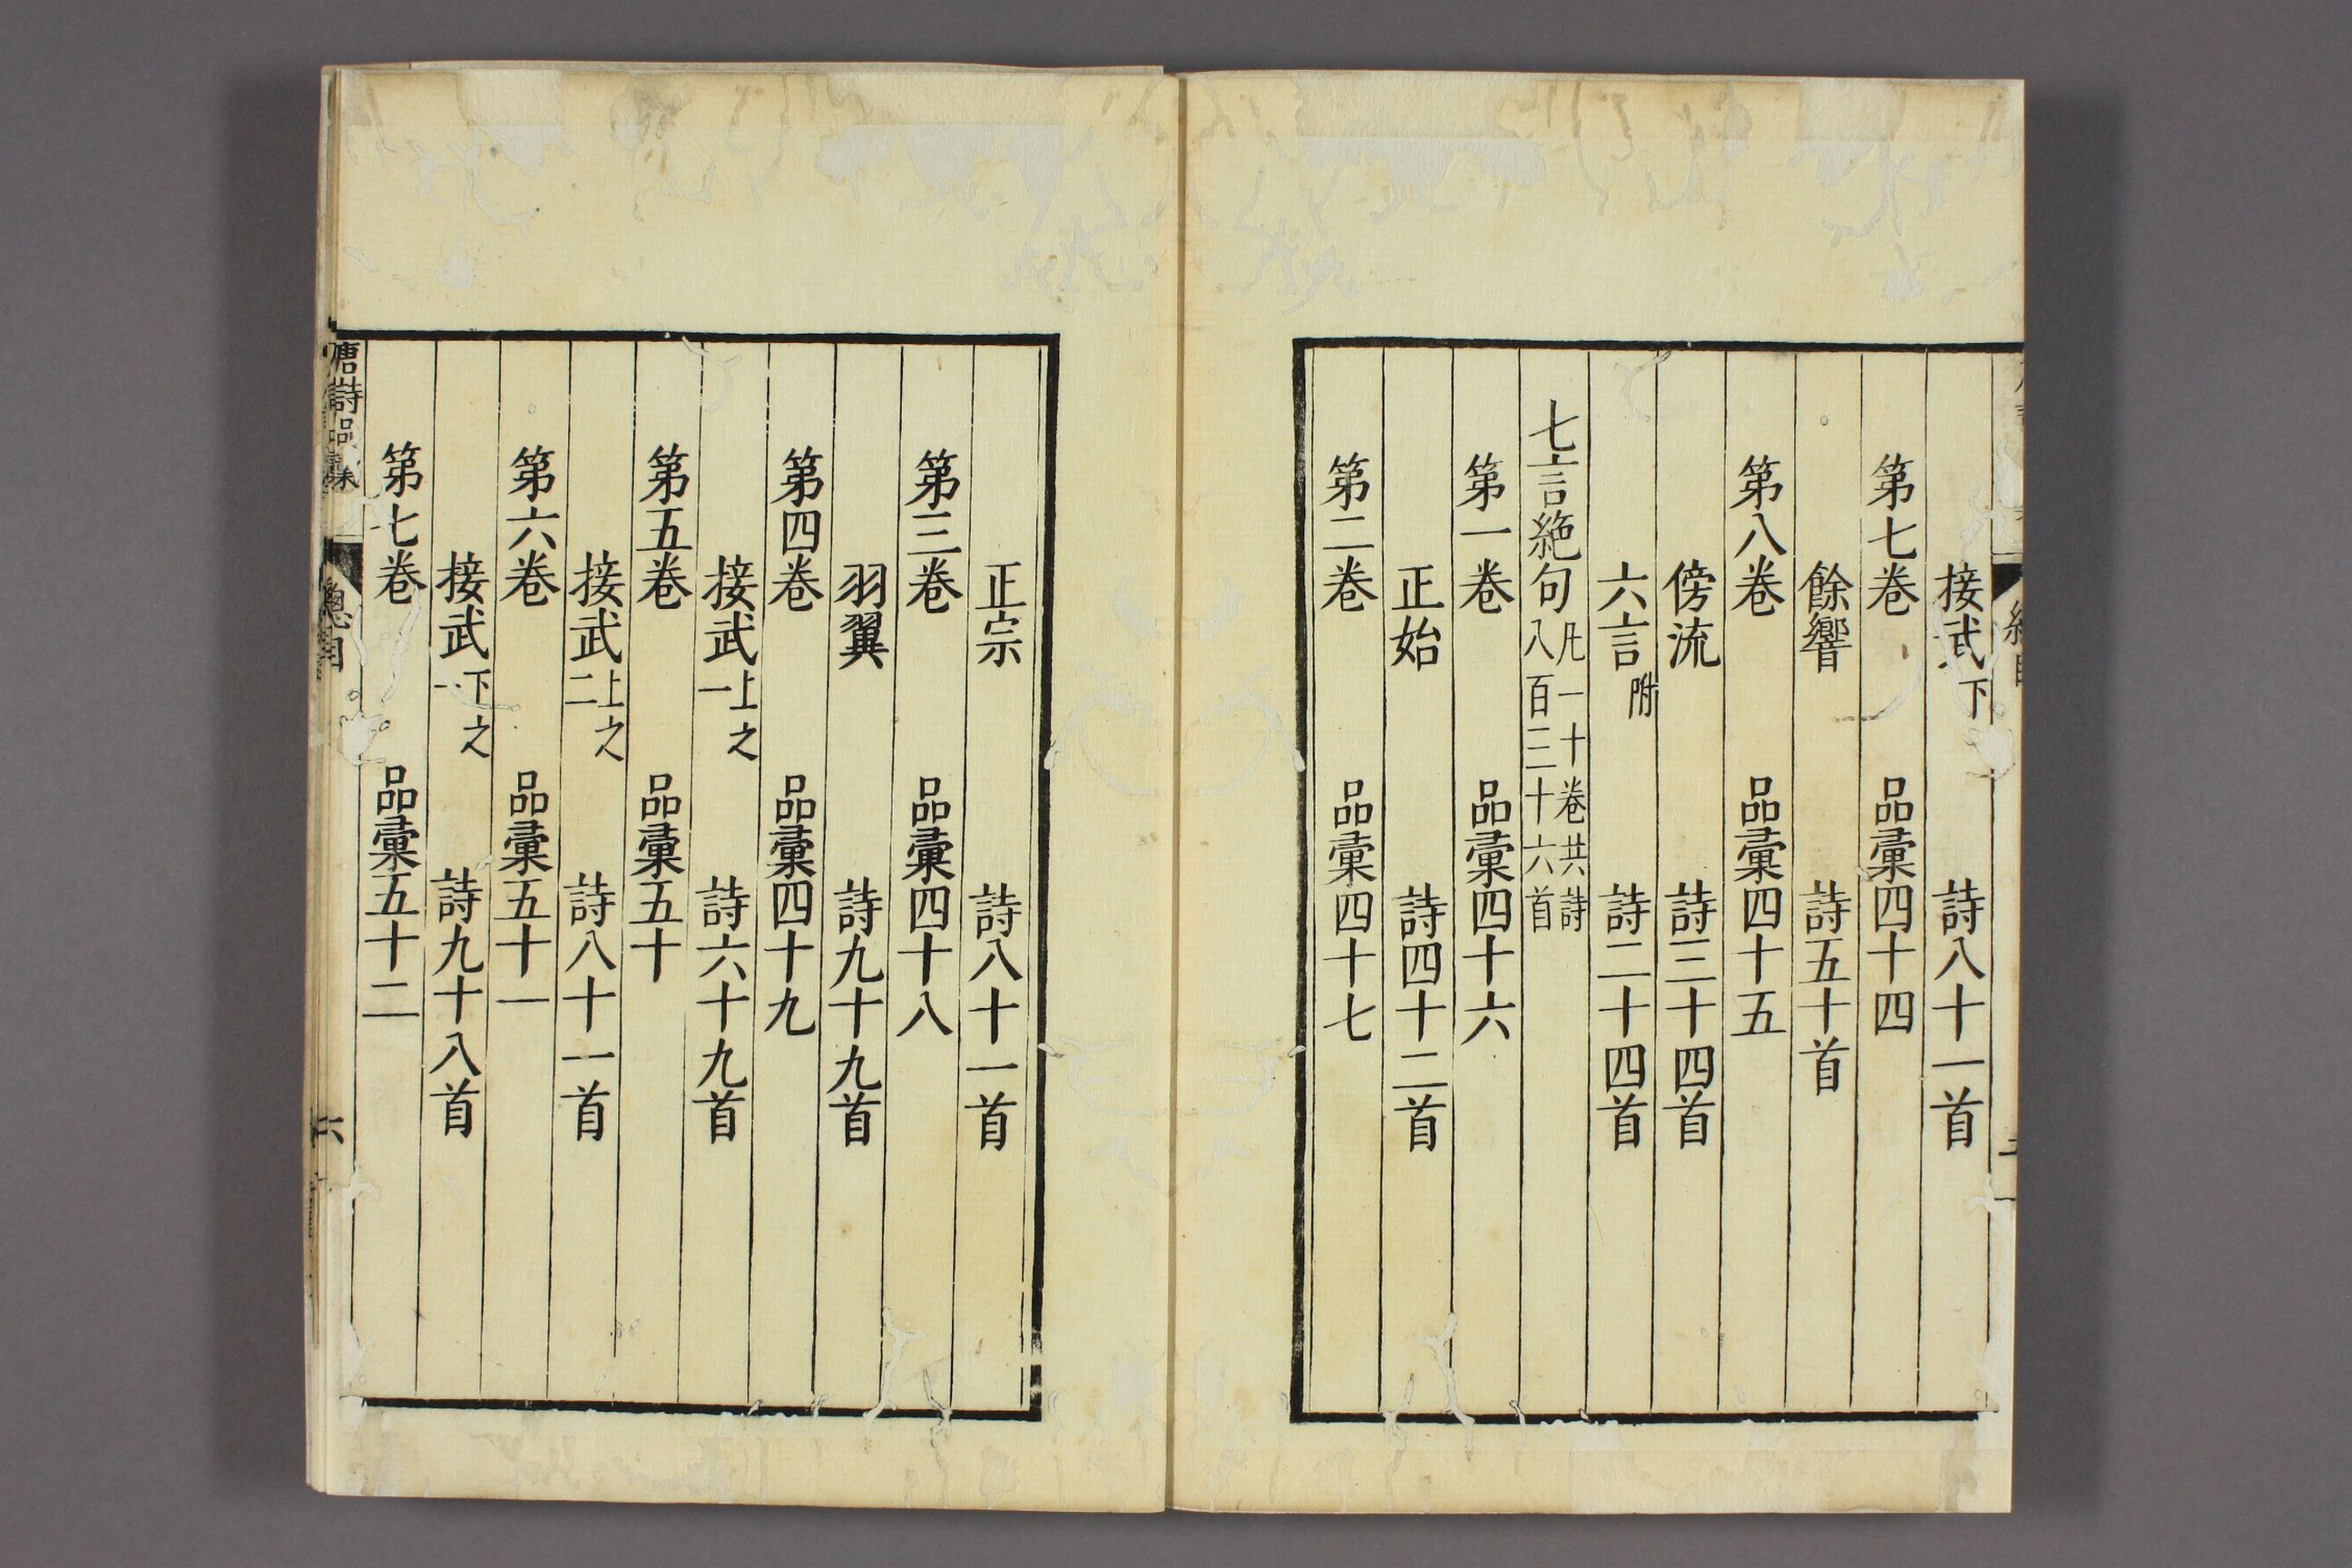 接武下 詩八十一首
第七卷 品彙四十四
餘響 詩五十首
第八卷 品彙四十五
傍流 詩三十四首
六言附 詩二十四首
七言絶句凡一十卷共詩八百三十六首
第一卷 品彙四十六
正始 詩四十二首
第二卷 品彙四十七
正宗 詩八十一首
第三卷 品彙四十八
羽翼 詩九十九首
第四卷 品彙四十九
接武上之一 詩六十九首
第五卷 品彙五十
接武上之二 詩八十一首
第六卷 品彙五十一
接武下之一 詩九十八首
第七卷 品彙五十二
唐詩品彙 總目 六